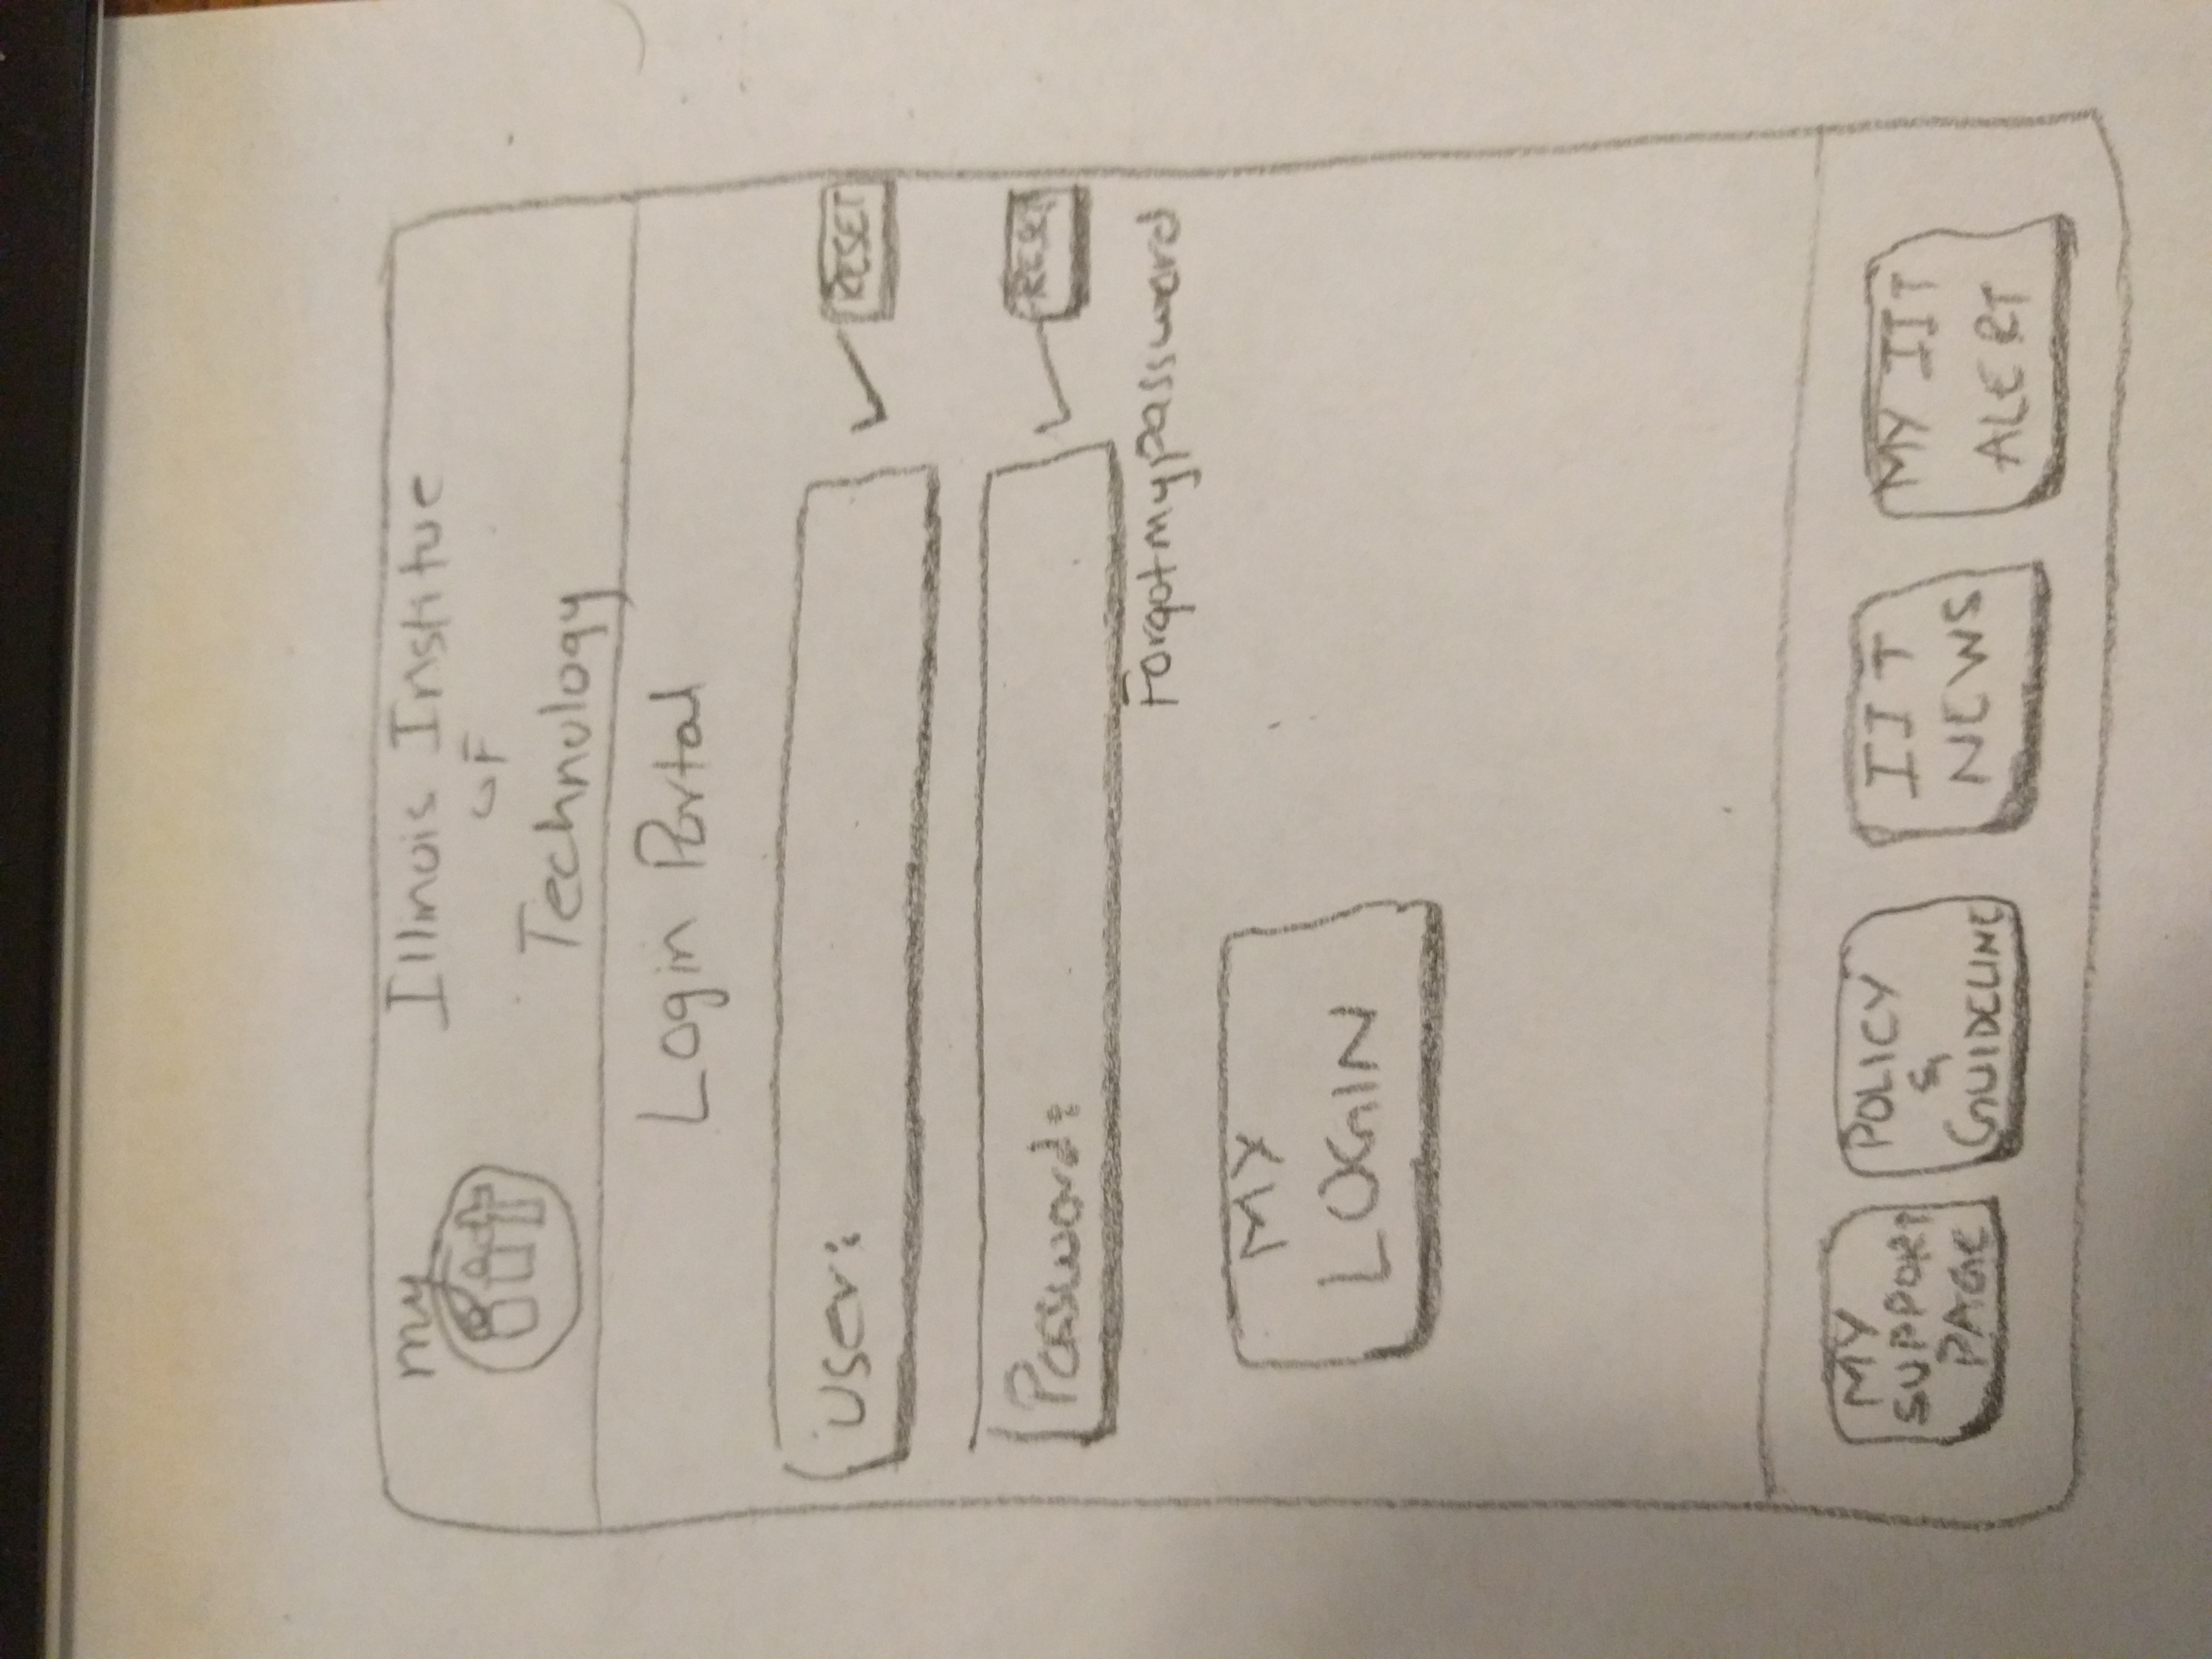 my
Illinois Institue
of
Technology
Login Portal
User:
RESET
Password:
RESET
Forgot my password
MY
LOGIN
MY
SUPPORT
PAGE
POLICY
&
GUIDELINE
IIT
NEWS
MY IIT
ALERT